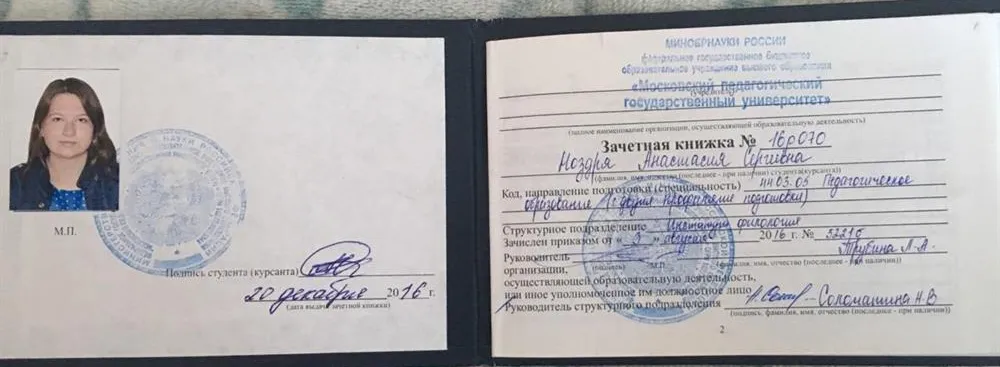 М.П.
Подпись студента (курсанта)
20 декабря 2016 г.
(дата выдачи зачетной книжки)
МИНОБРНАУКИ РОССИИ
федеральное государственное бюджетное
образовательное учреждение высшего образования
«Московский педагогический
(учредитель)
государственный университет»
(полное наименование организации, осуществляющей образовательную деятельность)
Зачетная книжка № 16р070
Ноздря Анастасия Сергеевна
(фамилия, имя, отчество (последнее - при наличии) студента(курсанта))
Код, направление подготовки (специальность) 44.03.05 Педагогическое
образование (с двумя профилями подготовки)
Структурное подразделение Институт филологии
Зачислен приказом от « 5 » августа 2016 г. №
Руководитель Трубина Л.А.
(подпись) (фамилия, имя, отчество (последнее - при наличии))
организации,
осуществляющей образовательную деятельность,
или иное уполномоченное им должностное лицо
Руководитель структурного подразделения Соломатина Н.В
(подпись, фамилия, имя, отчество (последнее - при наличии))
2